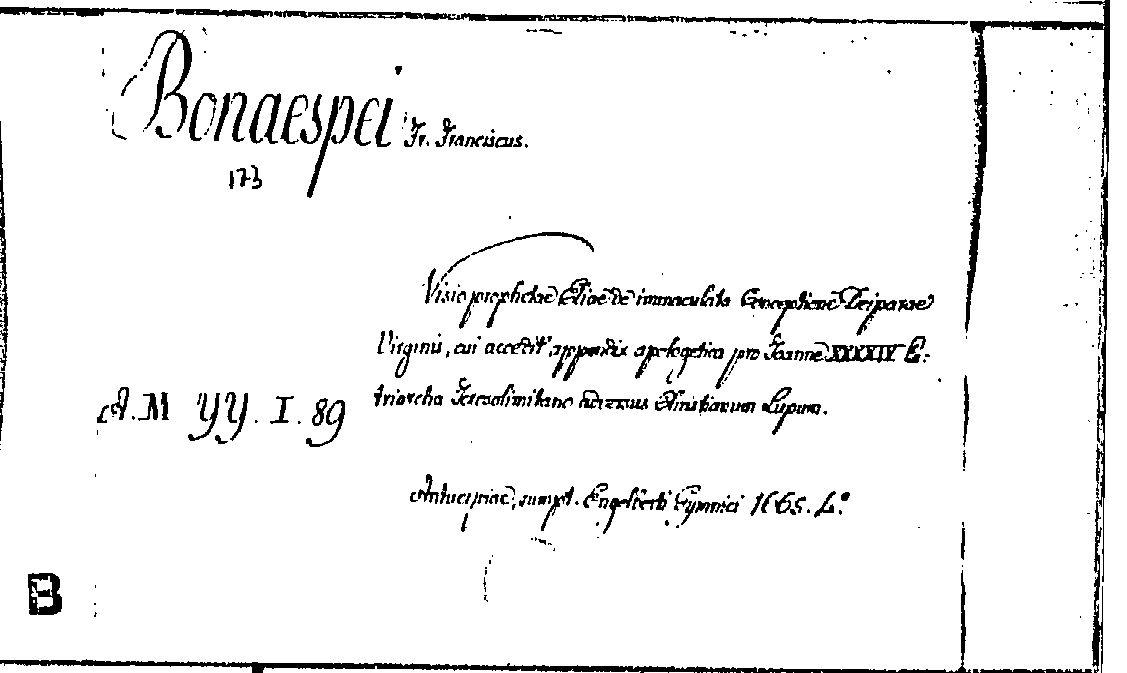 Bonaespei Fr. Franciscus.
173
Visio prophetae Eliae de immaculata Conceptione Deiparae
Virginis, cui accedit appendix apologetica pro Joanne XXXXIV Pa-
triarcha Jerosolimitano adversus Christianum Lupum.
A.M YY. I. 89
Antuerpiae, sumpt. Engelberti Gymnici 1665. 4.°
B